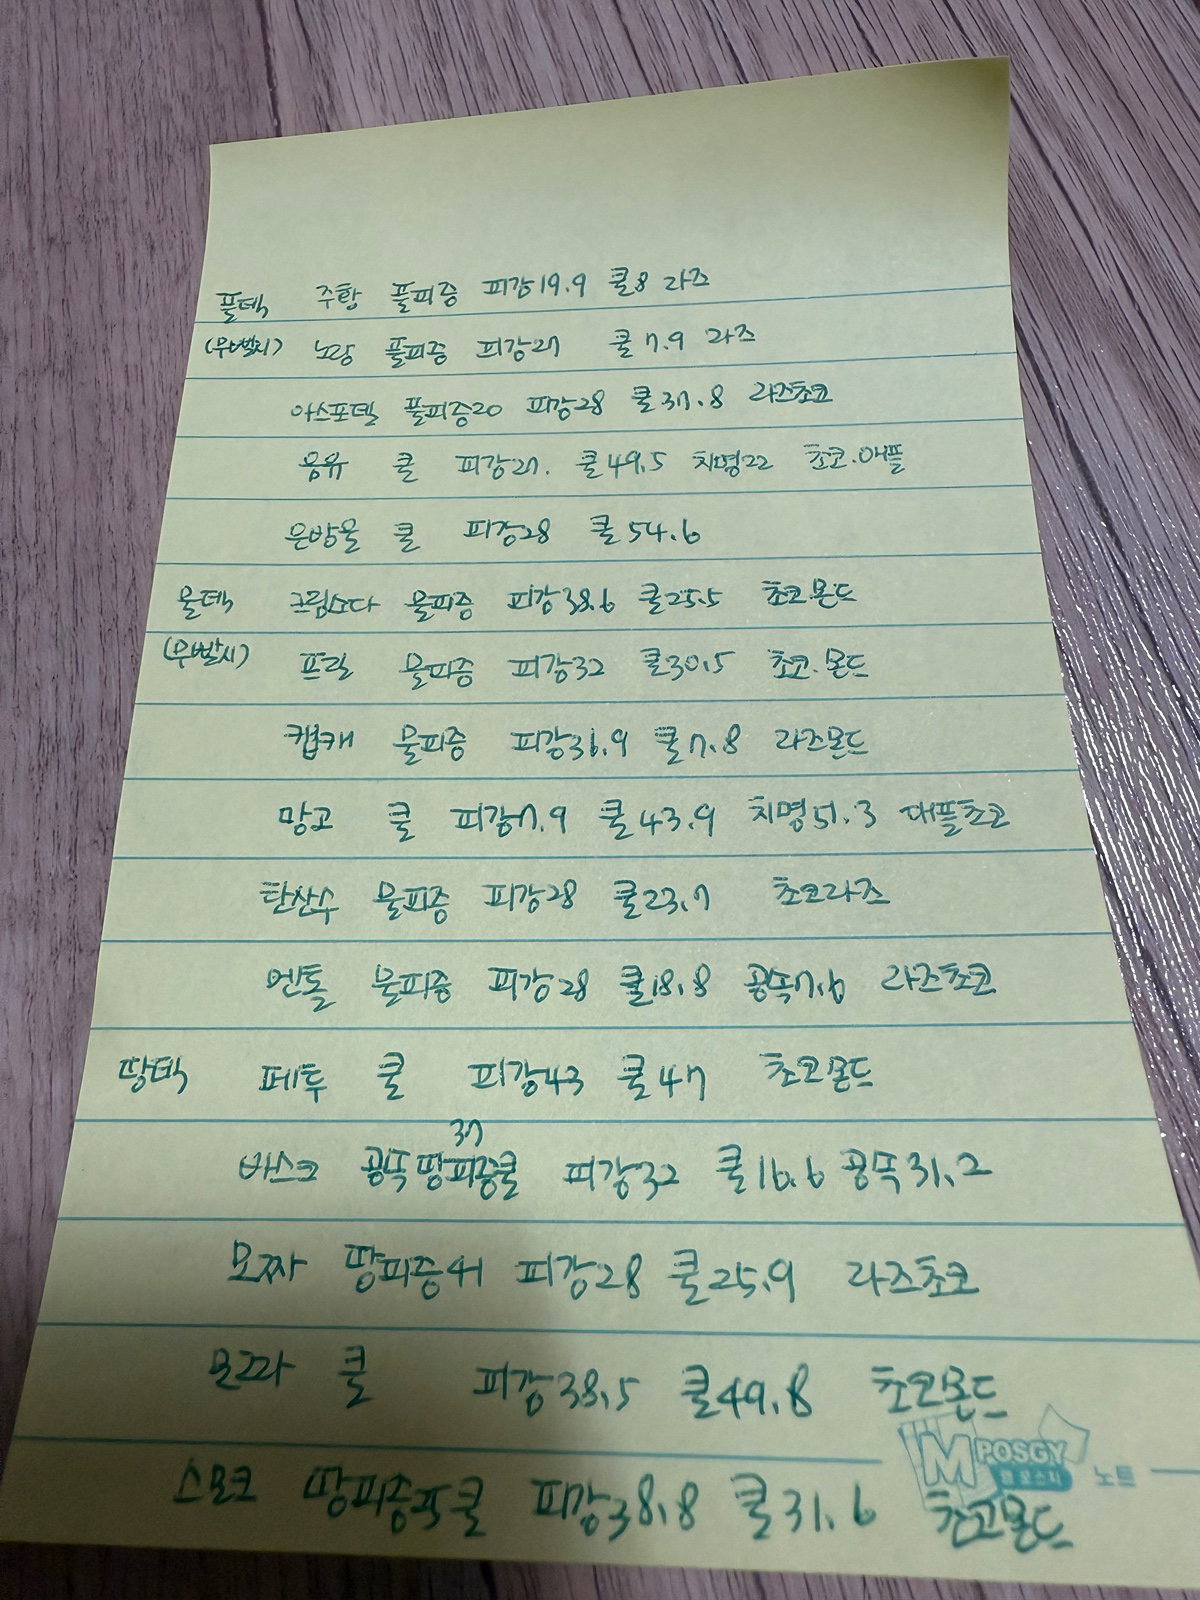 풀덱 주황 풀피증 피감19.9 쿨8 라즈
(우벨시) 노랑 풀피증 피감27 쿨7.9 라즈
아스포델 풀피증20 피감28 쿨37.8 라즈초코
용유 쿨 피감27. 쿨49.5 치명22 초코.애플
은방울 쿨 피감28 쿨54.6
물덱 크림소다 물피증 피감38.6 쿨25.5 초코.몬드
(우발시) 프릴 물피증 피감32 쿨30.5 초코.몬드
캡캐 물피증 피감36.9 쿨7.8 라즈몬드
망고 쿨 피감7.9 쿨43.9 치명51.3 애플초코
탄산수 물피증 피감28 쿨23.7 초코라즈
멘톨 물피증 피감28 쿨18.8 공뚝7.6 라즈초코
땅덱 페투 쿨 피감43 쿨47 초코몬드
37
바스크 공뚝땅피증쿨 피감32 쿨16.6 공뚝31.2
모짜 땅피증41 피감28 쿨25.9 라즈초코
모그라 쿨 피감38.5 쿨49.8 초코몬드
스모크 피감38.8 쿨31.6 초코몬드
MPOSGY
엠포스지 노트